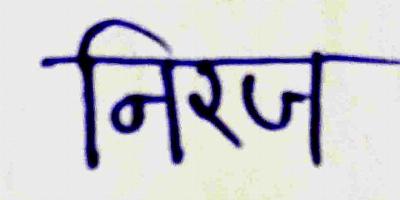 निरज